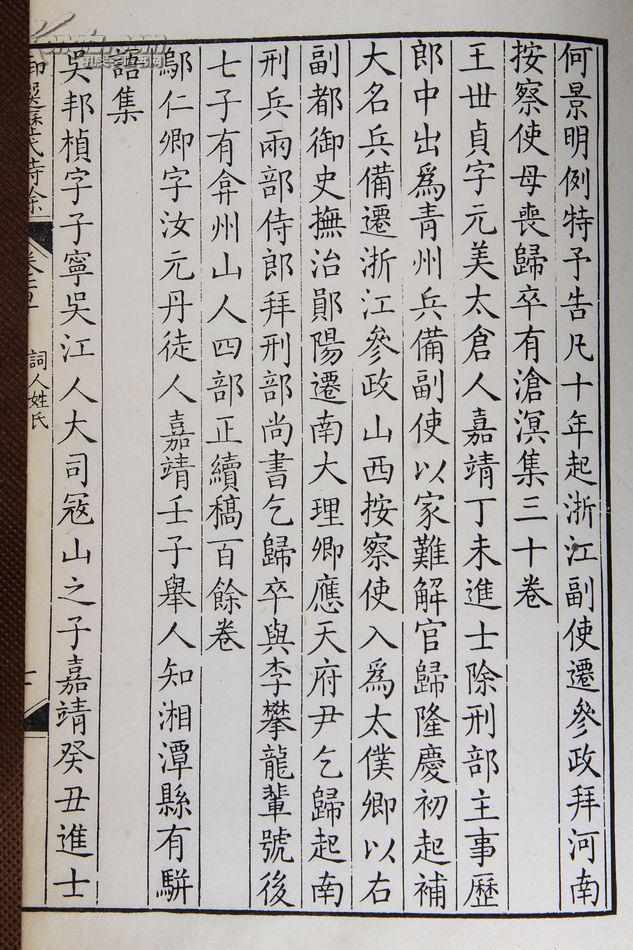 何景明例特予告凡十年起浙江副使遷參政拜河南
按察使母喪歸卒有滄溟集三十卷
王世貞字元美太倉人嘉靖丁未進士除刑部主事歷
郎中出爲青州兵備副使以家難解官歸隆慶初起補
大名兵備遷浙江參政山西按察使入爲太僕卿以右
副都御史撫治鄖陽遷南大理卿應天府尹乞歸起南
刑兵兩部侍郎拜刑部尚書乞歸卒與李攀龍輩號後
七子有弇州山人四部正續稿百餘卷
鄔仁卿字汝元丹徒人嘉靖壬子舉人知湘潭縣有駢
語集
吳邦楨字子寧吳江人大司寇山之子嘉靖癸丑進士
御選歷代詩餘
詞人姓氏
孔夫子旧书网